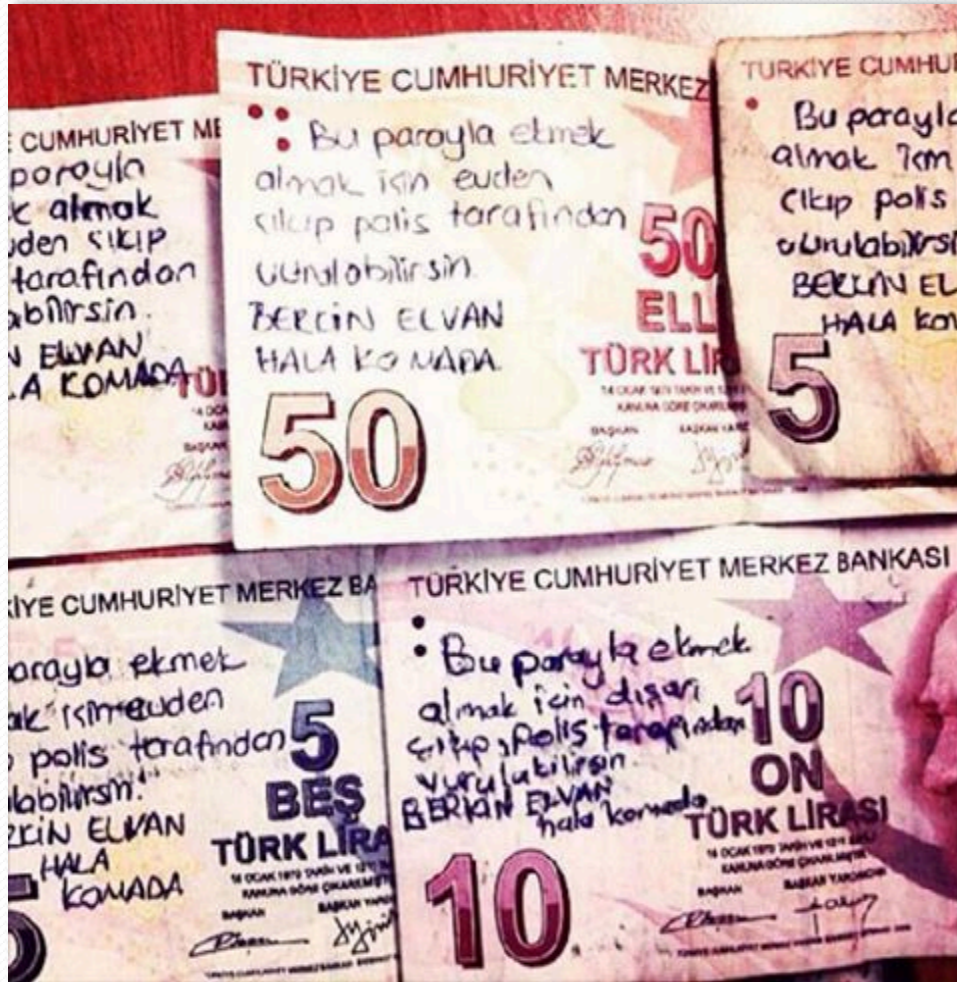 CUMHURİYET ME
parayla
k almak
vden çıkıp
tarafından
abilirsin.
N ELVAN
A KOMADA
TÜRKİYE CUMHURİYET MERKEZ
Bu parayla ekmek
almak için evden
çıkıp polis tarafından
vurulabilirsin.
BERKİN ELVAN
HALA KOMADA
50
ELL
TÜRK LİR
BAŞKAN
50
TÜRKİYE CUMHU
Bu parayla
almak için
çıkıp polis
vurulabilirsi
BERKİN EL
HALA KO
5
İYE CUMHURİYET MERKEZ BA
parayla ekmek
ak için evden
polis tarafından
labilirsin!
KİN ELVAN
HALA
KOMADA
5
BEŞ
TÜRK LİRA
BAŞKAN
TÜRKİYE CUMHURİYET MERKEZ BANKASI
Bu parayla ekmek
almak için dışarı
çıkıp, polis tarafından
vurulabilirsin.
BERKİN ELVAN
hala komada
10
ON
TÜRK LİRASI
14 OCAK 1970 TARİH VE 1211 SAYILI
KANUNA GÖRE ÇIKARILMIŞTIR
BAŞKAN BAŞKAN YARDIMCISI
10